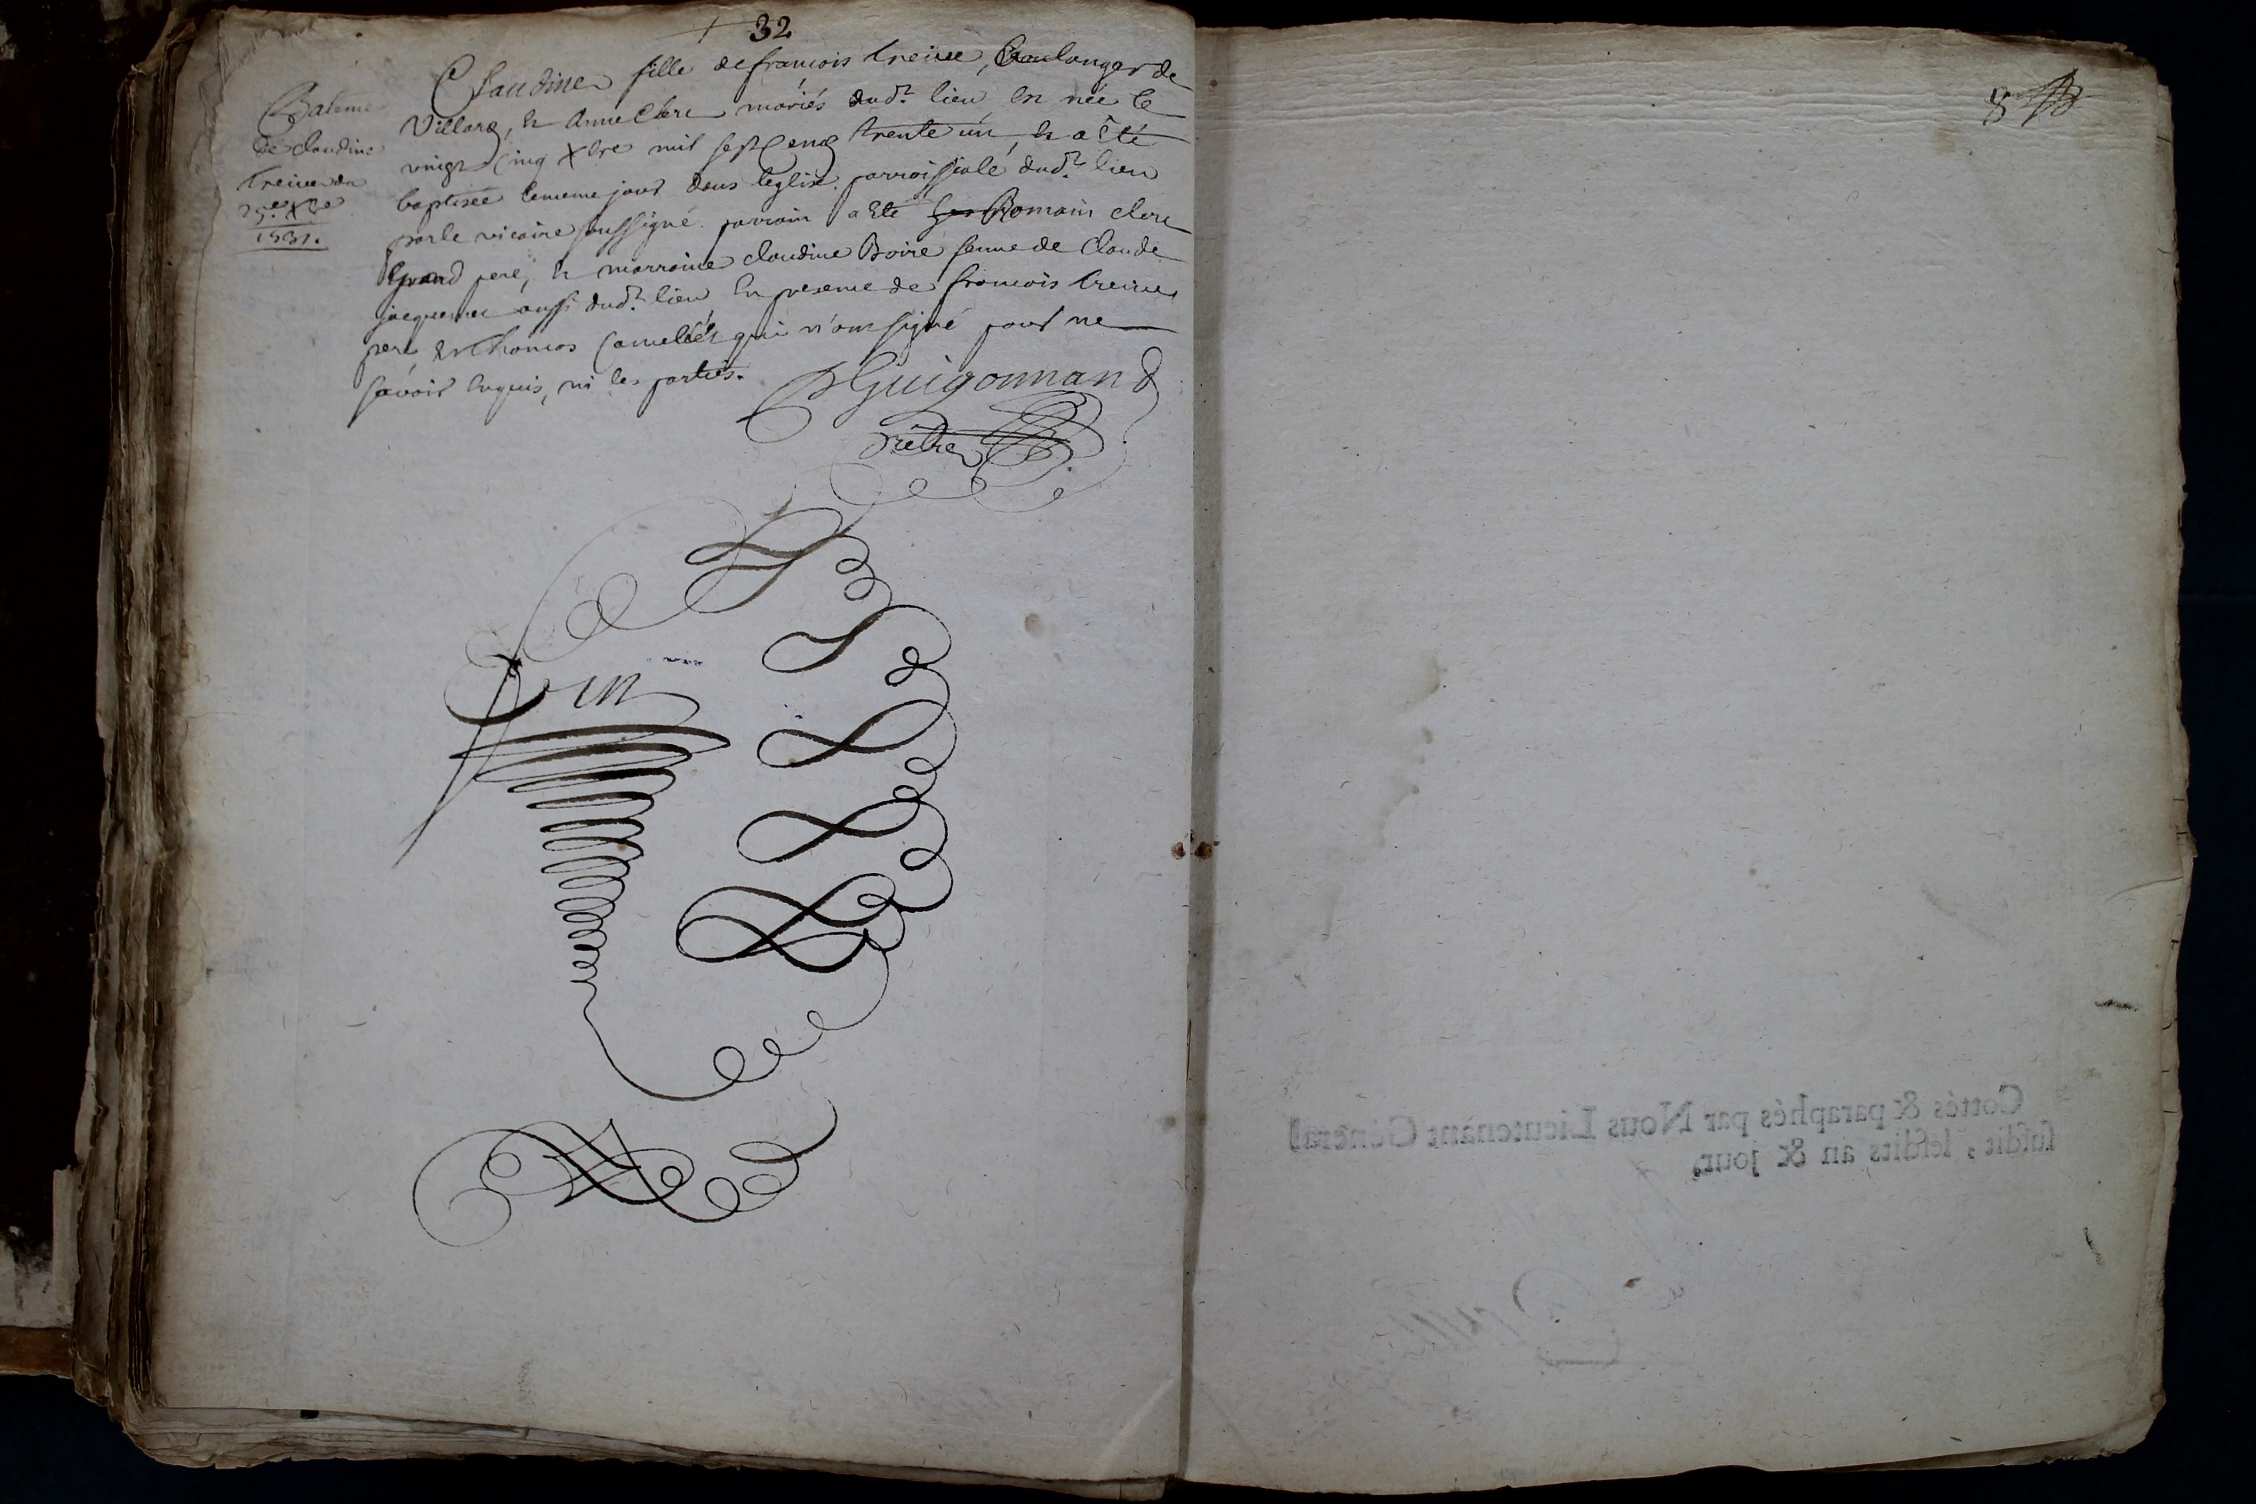 32
Claudine fille de francois treive, Boulanger de
Villars, et Anne Clerc mariés dudt. lieu est née le
vingt cinq Xbre mil sept cens trente un, et a Eté
baptisée le meme jour dans leglise parroissiale dudt. lieu
par le vicaire soussigné. parrain a Eté Romain clerc
grand pere, et marraine claudine Boire femme de Claude
aussi dudt. lieu En presence de francois treive
pere et thomas qui n'ont signé pour ne
savoir Enquis, ni les parties.
Bateme
de claudine
treive du
25e. Xbre
1731.
Guigonnand
prêtre
Fin
8
Cottés & paraphés par Nous Lieutenant Général
susdit, lesdits an & jour,